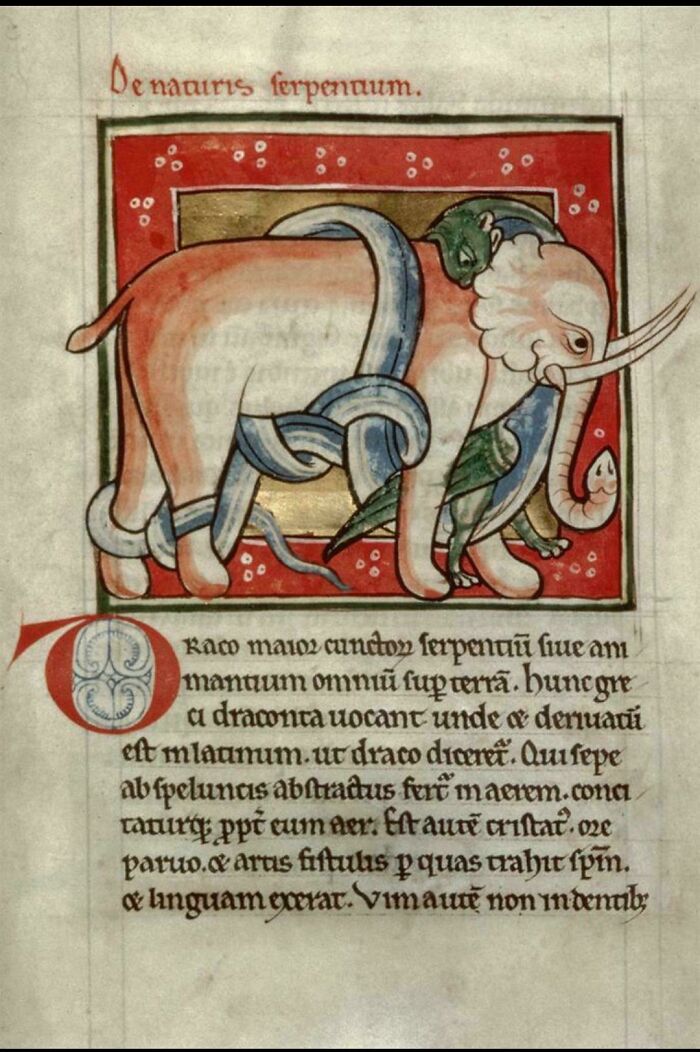 De naturis serpentium.
DRaco maior cunctoꝝ serpentiū siue ani
mantium omniū suꝑ terrā. hunc gre
ci draconta uocant unde ⁊ deriuatū
est in latinum. ut draco dicereť. Qui sepe
ab speluncis abstractus ferť in aerem. conci
taturqꝫ ꝓpť eum aer. Est autē cristatꝰ. ore
paruo. ⁊ artis fistulis ꝑ quas trahit spm̄.
⁊ linguam exerat. Vim autē non in dentibꝫ